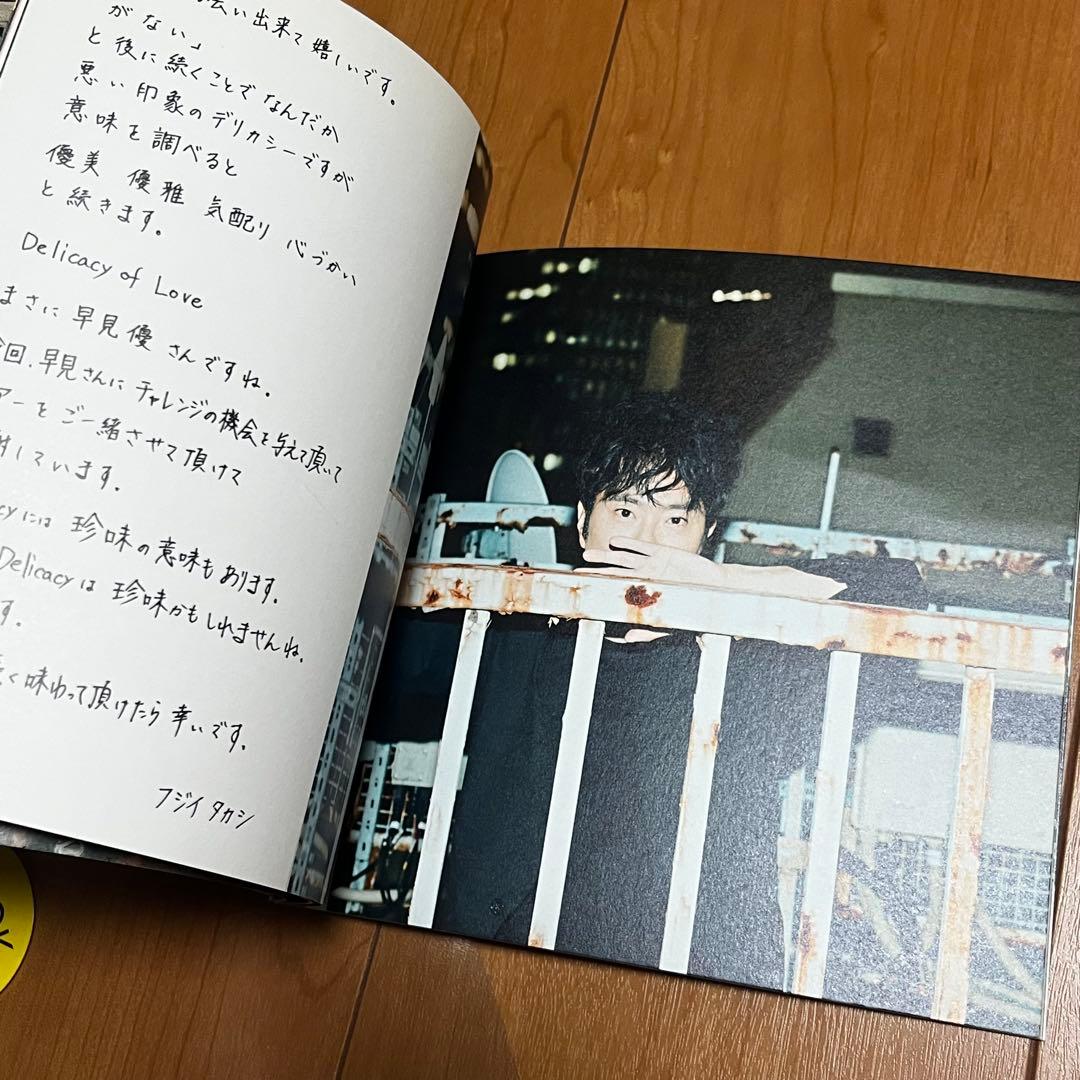 い出来て嬉しいです。
がない」
と後に続くことでなんだか
悪い印象のデリカシーですが
意味を調べると
優美 優雅 気配り 心づかい
と続きます。
Delicacy of Love
まさに早見優さんですね。
回、早見さんにチャレンジの機会を与えて頂いて
アーをご一緒させて頂けて
しています。
cyには珍味の意味もあります。
Delicacyは珍味かもしれませんね。
す。
く味わって頂けたら幸いです。
フジイタカシ